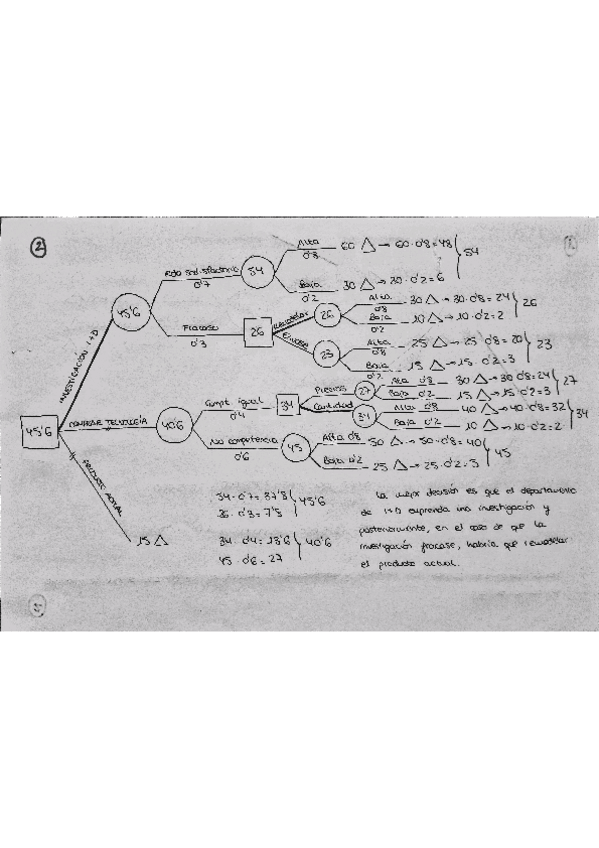 2
Alta 60 → 60·0'8=48
0'8
54
Rdo satisfactorio 54
0'7
Baja 30 → 30·0'2=6
0'2
45'6
INVESTIGACIÓN I+D
Fracaso 26
0'3
26 Alta 30 → 30·0'8=24
0'8
26
Baja 10 → 10·0'2=2
0'2
23 Alta 25 → 25·0'8=20
0'8
23
Baja 15 → 15·0'2=3
0'2
45'6
TECNOLOGÍA 40'6
Compt. igual 34
0'4
Precios 27 Alta 0'8 30 → 30·0'8=24
27
Baja 0'2 15 → 15·0'2=3
Cantidad 34 Alta 0'8 40 → 40·0'8=32
34
Baja 0'2 10 → 10·0'2=2
No competencia 45
0'6
Alta 0'8 50 → 50·0'8=40
45
Baja 0'2 25 → 25·0'2=5
PRODUCTO ACTUAL
15
54·0'7=37'8
45'6
26·0'3=7'8
34·0'4=13'6
40'6
45·0'6=27
La mejor decisión es que el departamento
de I+D emprenda una investigación y
posteriormente, en el caso de que la
investigación fracase, habría que remodelar
el producto actual.